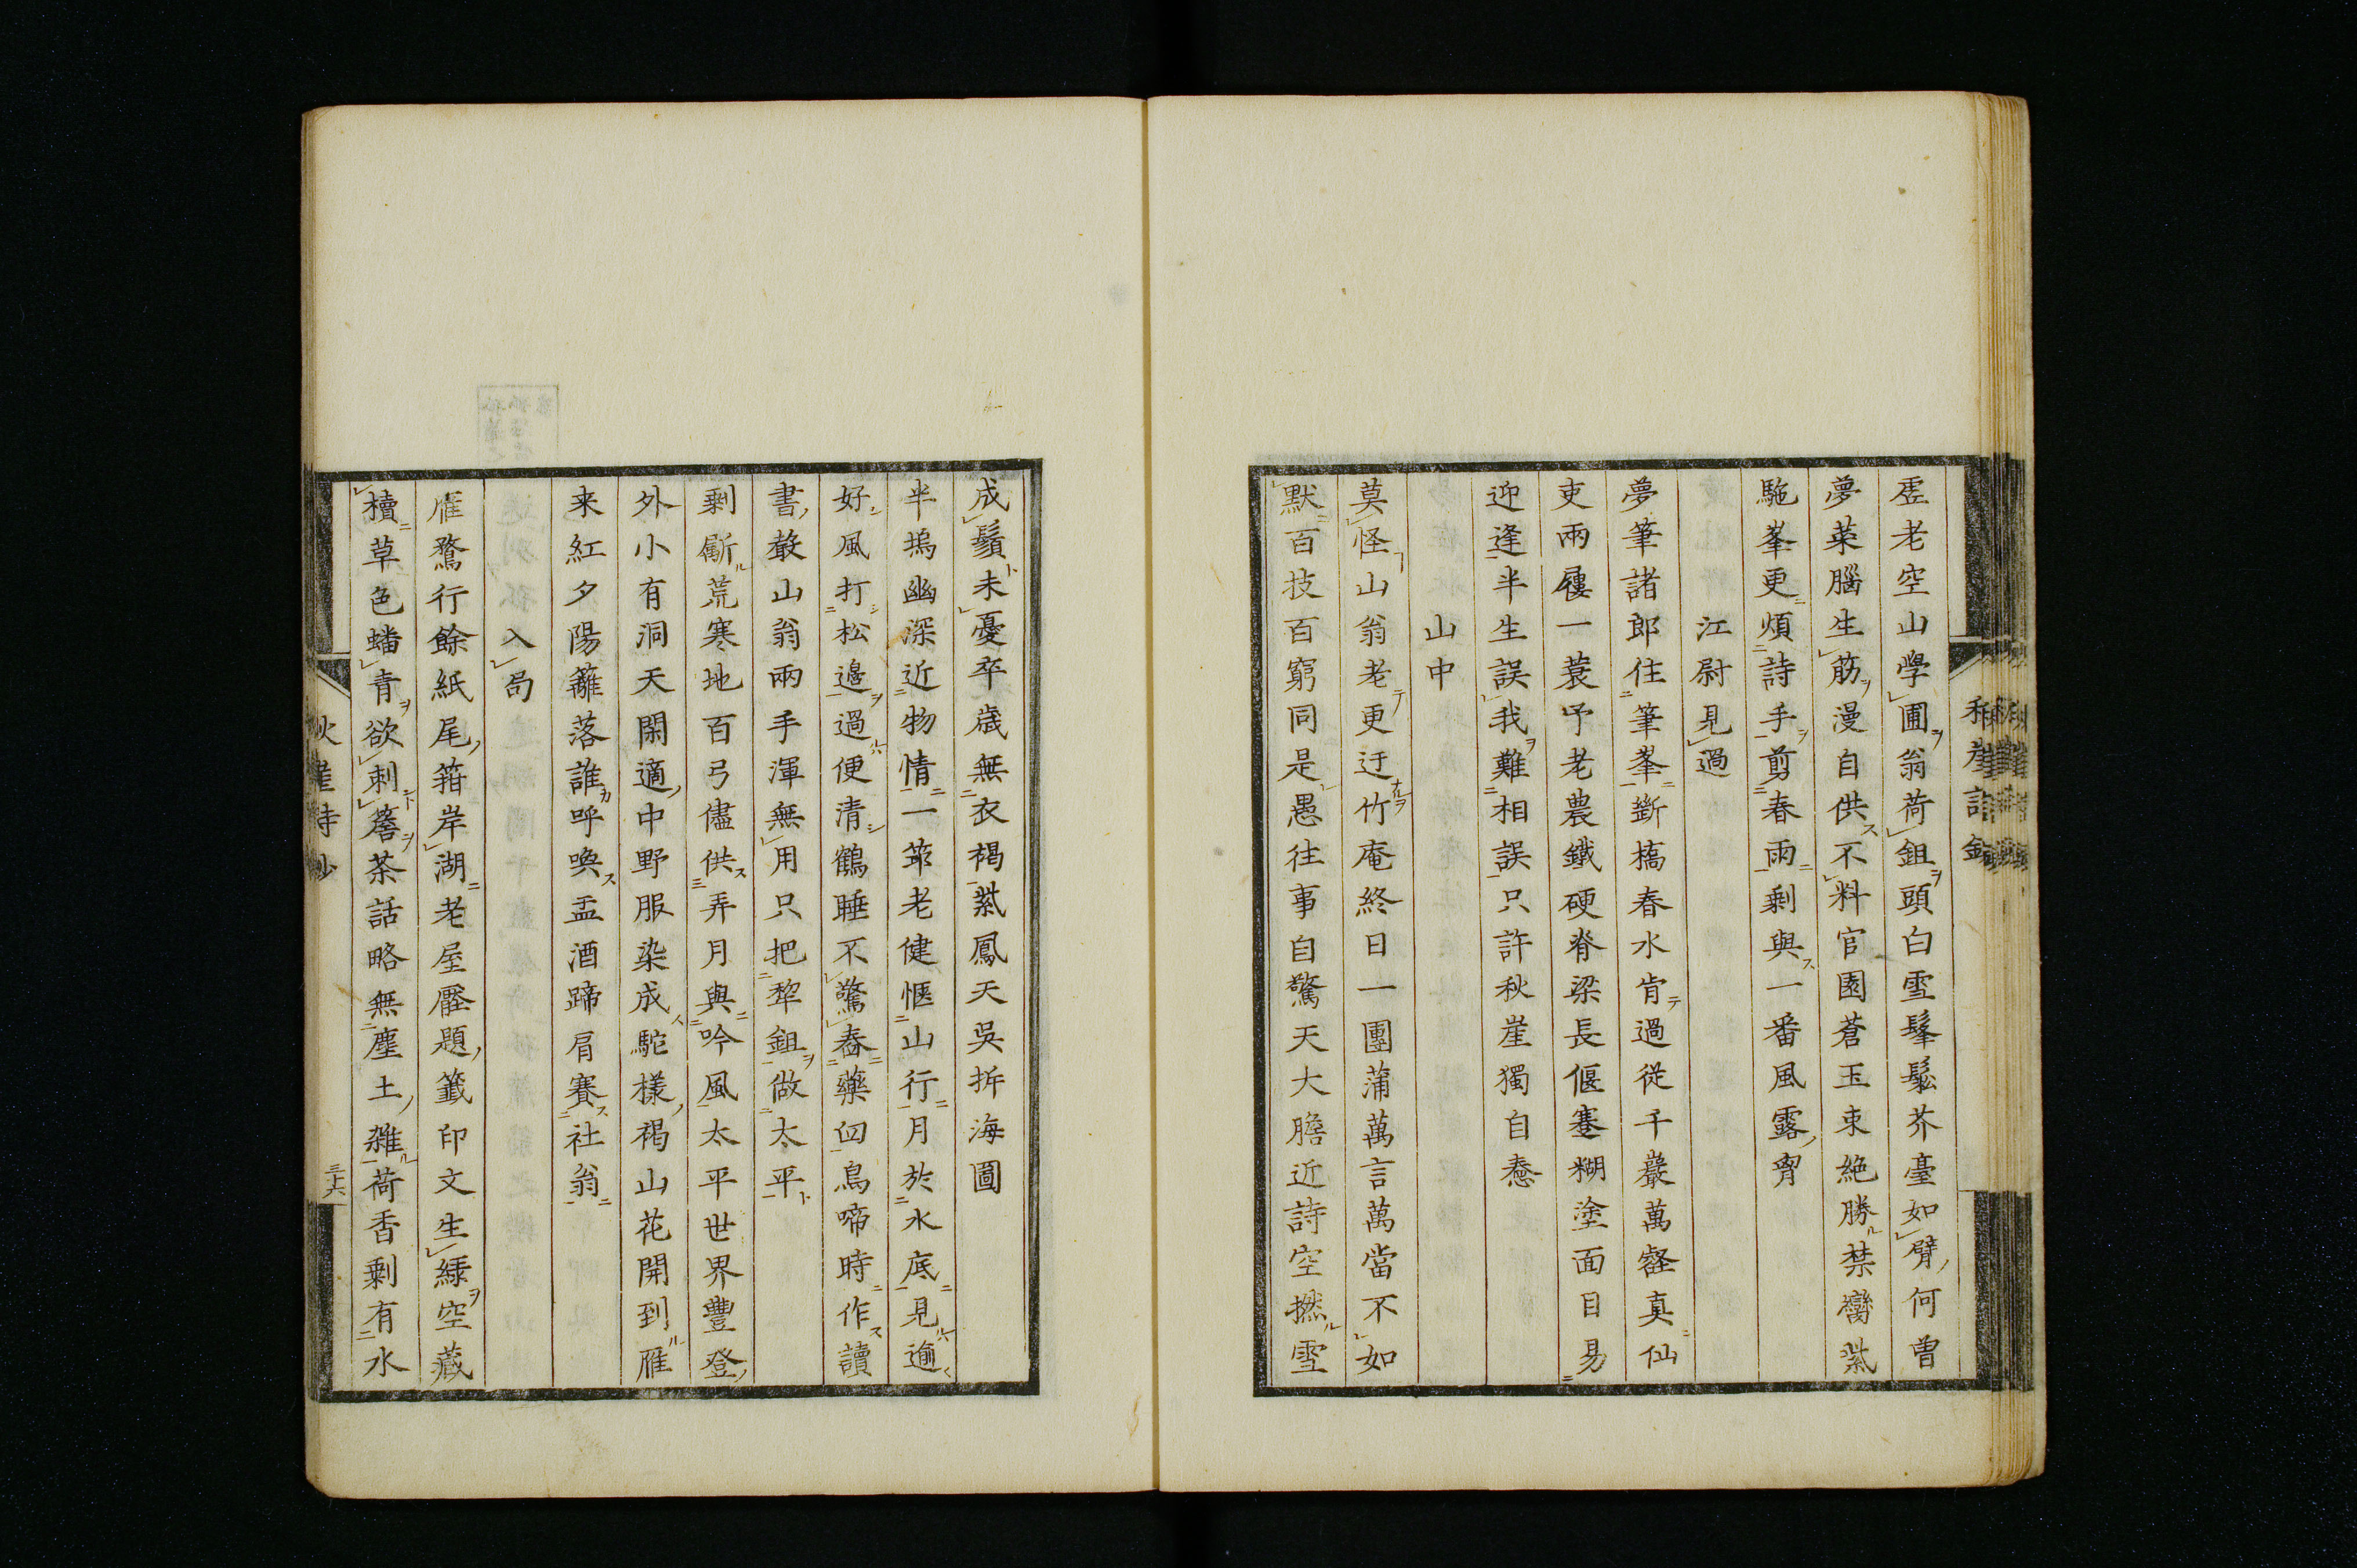 虗老空山學圃翁荷鉏頭白雪髼鬆芥臺如臂何曽
夢菜腦生筋漫自供不料官園蒼玉束絶勝禁臠紫
駞峯更煩詩手剪春雨剩與一番風露
江尉見過
夢筆諸郎住筆峯斷橋春水肯過從千巖萬壑真仙
吏兩屨一蓑予老農鐵硬脊梁長偃蹇糊塗面目易
迎逢半生誤我難相誤只許秋崖獨自憃
山中
莫怪山翁老更迂竹庵終日一團蒲萬言萬當不如
默百技百窮同是愚往事自驚天大膽近詩空撚雪
成鬚未憂卒歳無衣褐紫鳳天吳拆海圖
半塢幽深近物情一笻老健愜山行月於水底見逾
好風打松邊過便清鶴睡不驚舂藥臼鳥啼時作讀
書聲山翁兩手渾無用只把犂鉏做太平
剩斸荒寒地百弓儘供弄月與吟風太平世界豐登
外小有洞天閑適中野服染成駝樣褐山花開到雁
来紅夕陽籬落誰呼喚盂酒蹄肩賽社翁
入局
雁鶩行餘紙尾箝岸湖老屋壓題籤印文生綠空藏
櫝草色蟠青欲刺簷茶話略無塵土雜荷香剩有水
秋崖詩鈔
三十六